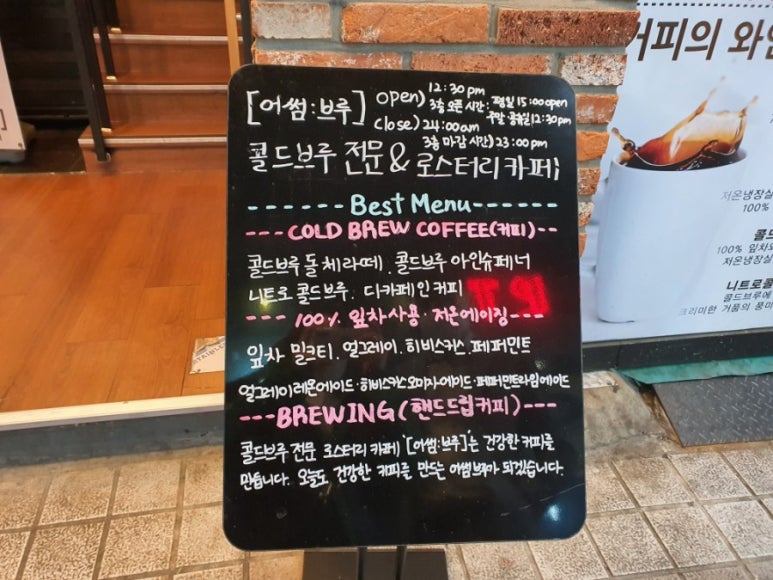 [어썸:브루] open) 12:30pm
3층 오픈 시간: 평일 15:00 open
주말 공휴일 12:30pm
close) 24:00am
3층 마감 시간) 23:00pm
콜드브루 전문 & 로스터리 카페
------Best Menu------
---COLD BREW COFFEE(커피)--
콜드브루 돌체라떼. 콜드브루 아인슈페너
니트로 콜드브루. 디카페인 커피
---100% 잎차사용·저온에이징---
잎차 밀크티. 얼그레이. 히비스커스. 페퍼민트
얼그레이레몬에이드·히비스커스오미자에이드·페퍼민트라임에이드
---BREWING(핸드드립커피)---
콜드브루 전문 로스터리 카페 '[어썸:브루]'는 건강한 커피를
만듭니다. 오늘도 건강한 커피를 만드는 어썸브루가 되겠습니다.
커피의 와인
저온냉장실
100%
100% 잎차
저온냉장실
니트로콜
콜드브루에
크리미한 거품의 풍미